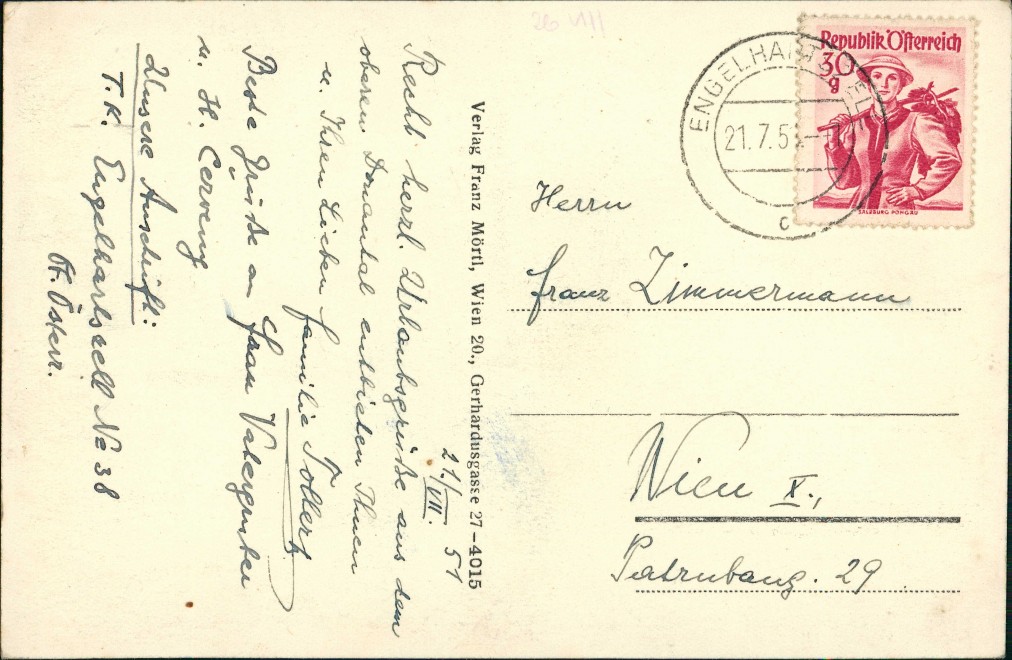 21./VII. 51
Recht herzl. Urlaubsgrüße aus dem
oberen Donautal entbieten Ihnen
u. Ihren Lieben Familie Tollert
Beste Grüße an Frau
u. H. Cerveny
Unsere Anschrift:
T.K. Engelhartszell No 38
Ob. Österr.
Verlag Franz Mörtl, Wien 20., Gerhardusgasse 27-4015
26 VII
ENGELHARTSZELL
21.7.51
c
Republik Österreich
30
g
SALZBURG PONGAU
Herrn
Franz Zimmermann
Wien X.,
29